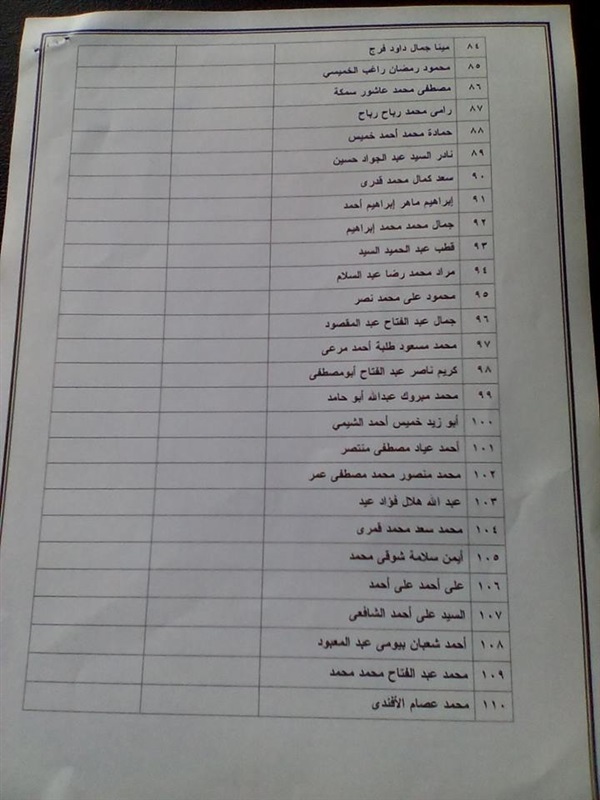 ٨٤ مينا جمال داود فرج
٨٥ محمود رمضان راغب الخميسي
٨٦ مصطفى محمد عاشور سمكة
٨٧ رامى محمد رباح رباح
٨٨ حمادة محمد أحمد خميس
٨٩ نادر السيد عبد الجواد حسين
٩٠ سعد كمال محمد قدرى
٩١ إبراهيم ماهر إبراهيم أحمد
٩٢ جمال محمد محمد إبراهيم
٩٣ قطب عبد الحميد السيد
٩٤ مراد محمد رضا عبد السلام
٩٥ محمود على محمد نصر
٩٦ جمال عبد الفتاح عبد المقصود
٩٧ محمد مسعود طلبة أحمد مرعى
٩٨ كريم ناصر عبد الفتاح أبومصطفى
٩٩ محمد مبروك عبدالله أبو حامد
١٠٠ أبو زيد خميس أحمد الشيمي
١٠١ أحمد عياد مصطفى منتصر
١٠٢ محمد منصور محمد مصطفى عمر
١٠٣ عبد الله هلال فؤاد عيد
١٠٤ محمد سعد محمد قمرى
١٠٥ أيمن سلامة شوقى محمد
١٠٦ على أحمد على أحمد
١٠٧ السيد على أحمد الشافعى
١٠٨ أحمد شعبان بيومى عبد المعبود
١٠٩ محمد عبد الفتاح محمد محمد
١١٠ محمد عصام الأفندى